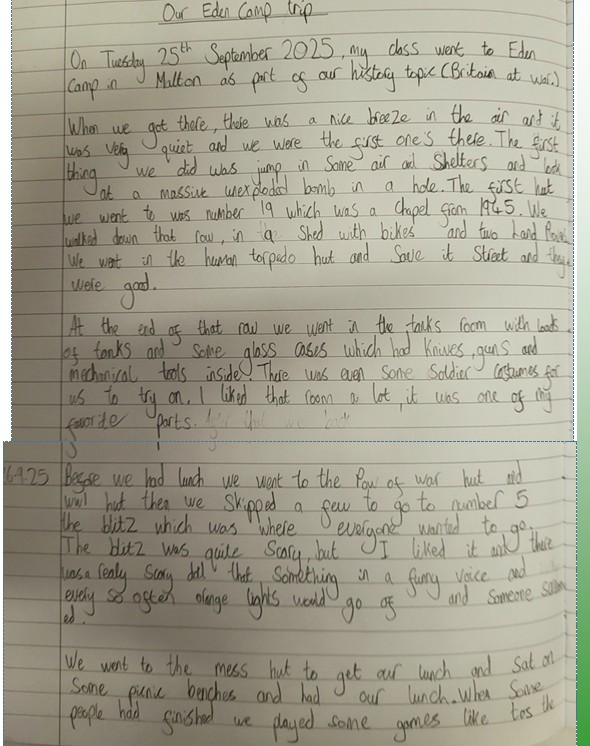 Our Eden Camp trip
On Tuesday 25th September 2025, my class went to Eden
Camp in Malton as part of our history topic (Britain at war.)
When we got there, there was a nice breeze in the air and it
was very quiet and we were the first one's there. The first
thing we did was jump in some air aid Shelters and look
at a massive unexploded bomb in a hole. The first hut
we went to was number 19 which was a Chapel from 1945. We
walked down that row, in a Shed with bikes and two Land
We went in the human torpedo hut and Save it Street and they
were good.
At the end of that row we went in the tanks room with loads
of tanks and some glass cases which had Knives, guns and
mechanical tools inside. There was even some Soldier Costumes for
us to try on. I liked that room a lot, it was one of my
favorite parts.
Before we had lunch we went to the Pow of war hut and
hut then we Skipped a few to go to number 5
the blitz which was where everyone wanted to go.
The blitz was quite Scary, but I liked it and there
was a realy Scary doll that Something in a funny voice and
every so often orange lights would go of and someone
ed.
We went to the mess hut to get our lunch and Sat on
Some picnic benches and had our lunch. When Some
people had finished we played some games like tos the